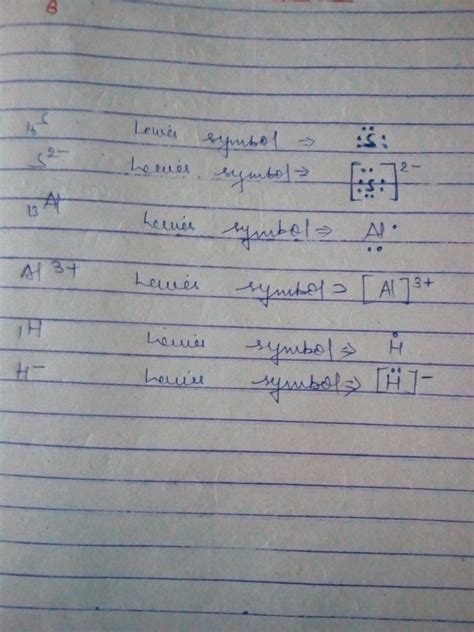 B
₁₆S Lewis symbol ⇒ :S̈:
S²⁻ Lewis symbol ⇒ [:S̤̈:]²⁻
₁₃Al Lewis symbol ⇒ Al
Al³⁺ Lewis symbol ⇒ [Al]³⁺
₁H Lewis symbol ⇒ Ḣ
H⁻ Lewis symbol ⇒ [Ḧ]⁻